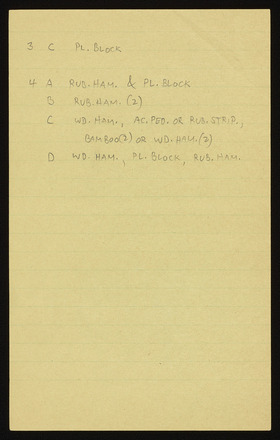 3 C PL. BLOCK
4 A RUB. HAM. & PL. BLOCK
B RUB. HAM. (2)
C WD. HAM., AC. PED. OR RUB. STRIP.,
BAMBOO(2) OR WD. HAM. (2)
D WD. HAM., PL. BLOCK, RUB. HAM.